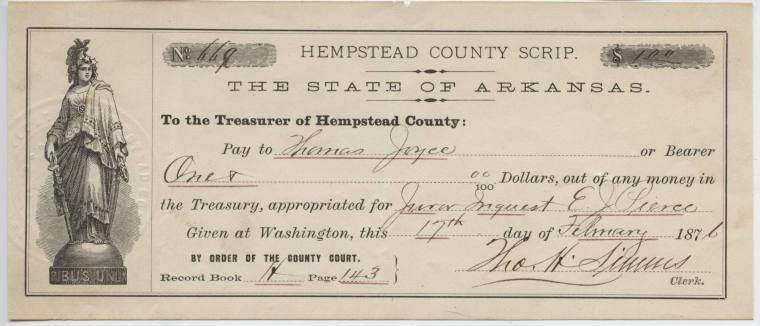 No 669 HEMPSTEAD COUNTY SCRIP. $ 1.00
THE STATE OF ARKANSAS.
To the Treasurer of Hempstead County:
Pay to Thomas Joyce or Bearer
One & 00/100 Dollars, out of any money in
the Treasury, appropriated for Juror Inquest E. J. Pierce
Given at Washington, this 17th day of February 1876
BY ORDER OF THE COUNTY COURT.
Record Book H Page 143
Tho. H. Simms
Clerk.
RIBUS UNUM